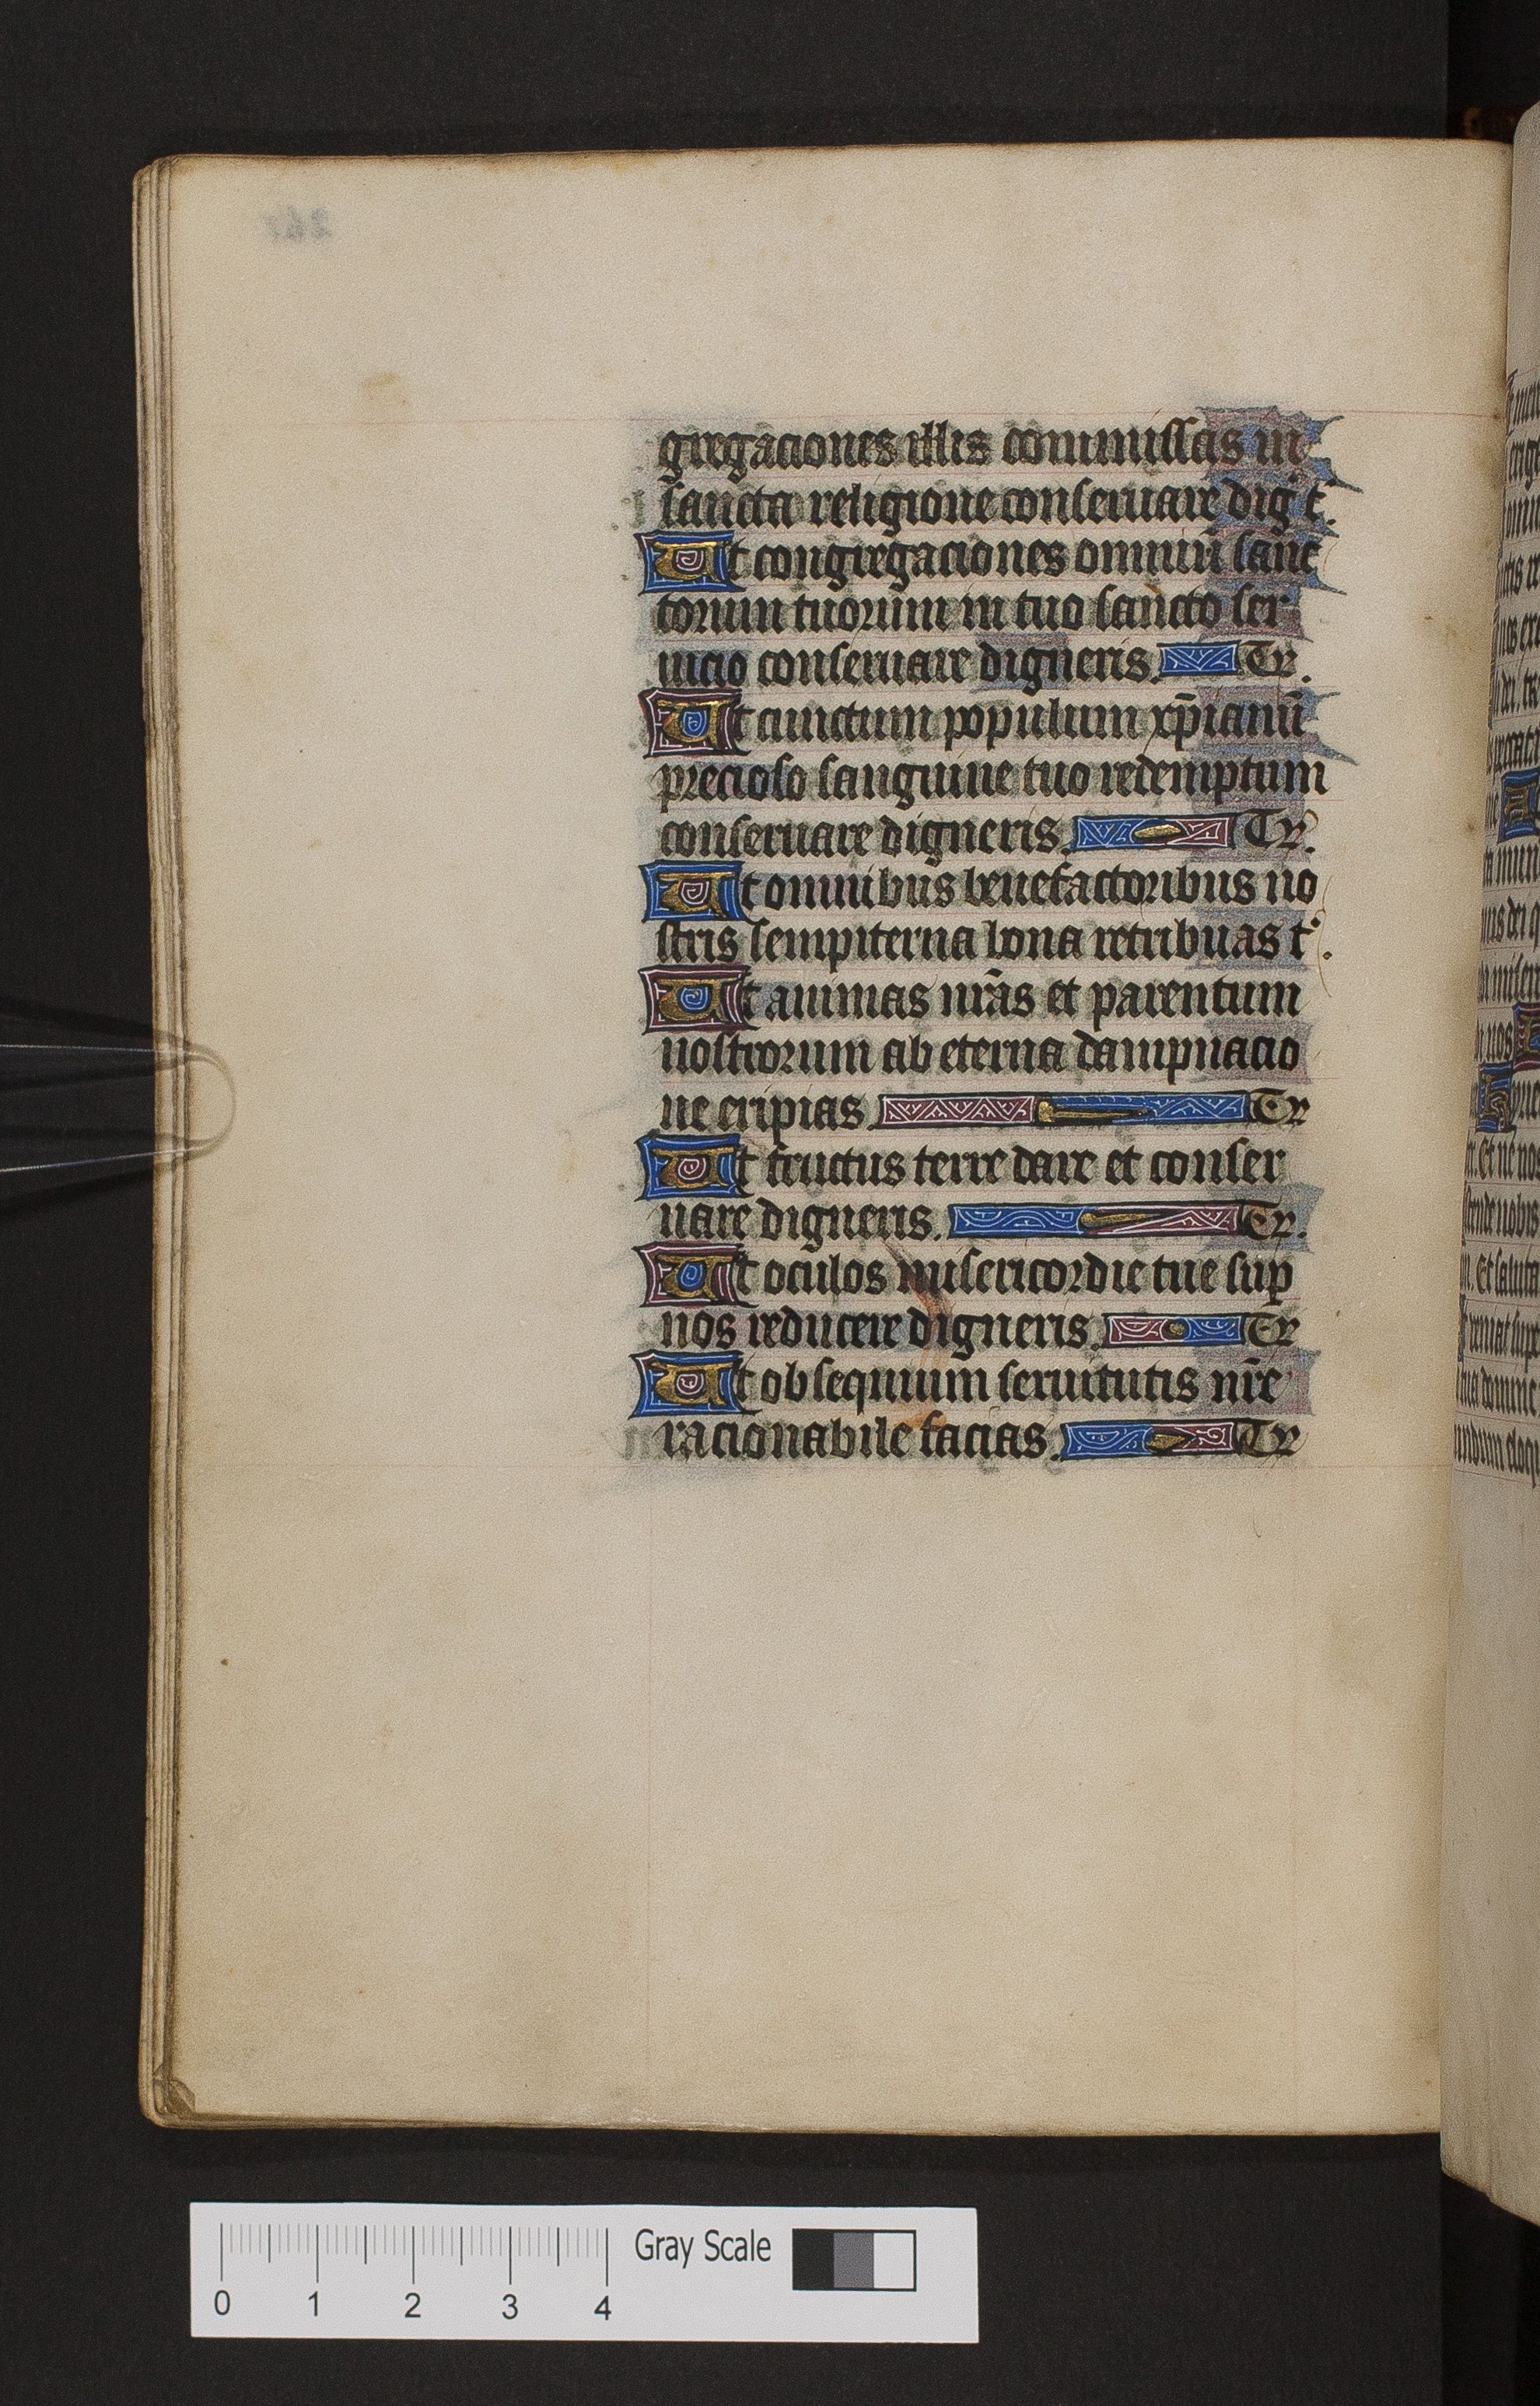 gregaciones illis commissas in
sancta religione conseruare dig' t'.
Ut congregaciones omniū sanc
torum tuorum in tuo sancto ser
uicio conseruare digneris. Te r.
Ut cunctum populum xp̄ianū
precioso sanguine tuo redemptum
conseruare digneris. Te r.
Ut omnibus benefactoribus no
stris sempiterna bona retribuas t'.
Ut animas nr̄as et parentum
nostrorum ab eterna dampnacio
ne eripias. Te r
Ut fructus terre dare et conser
uare digneris. Te r.
Ut oculos misericordie tue sup
nos reducere digneris. Te r
Ut obsequium seruitutis nr̄e
racionabile facias. Te r
0 1 2 3 4 Gray Scale